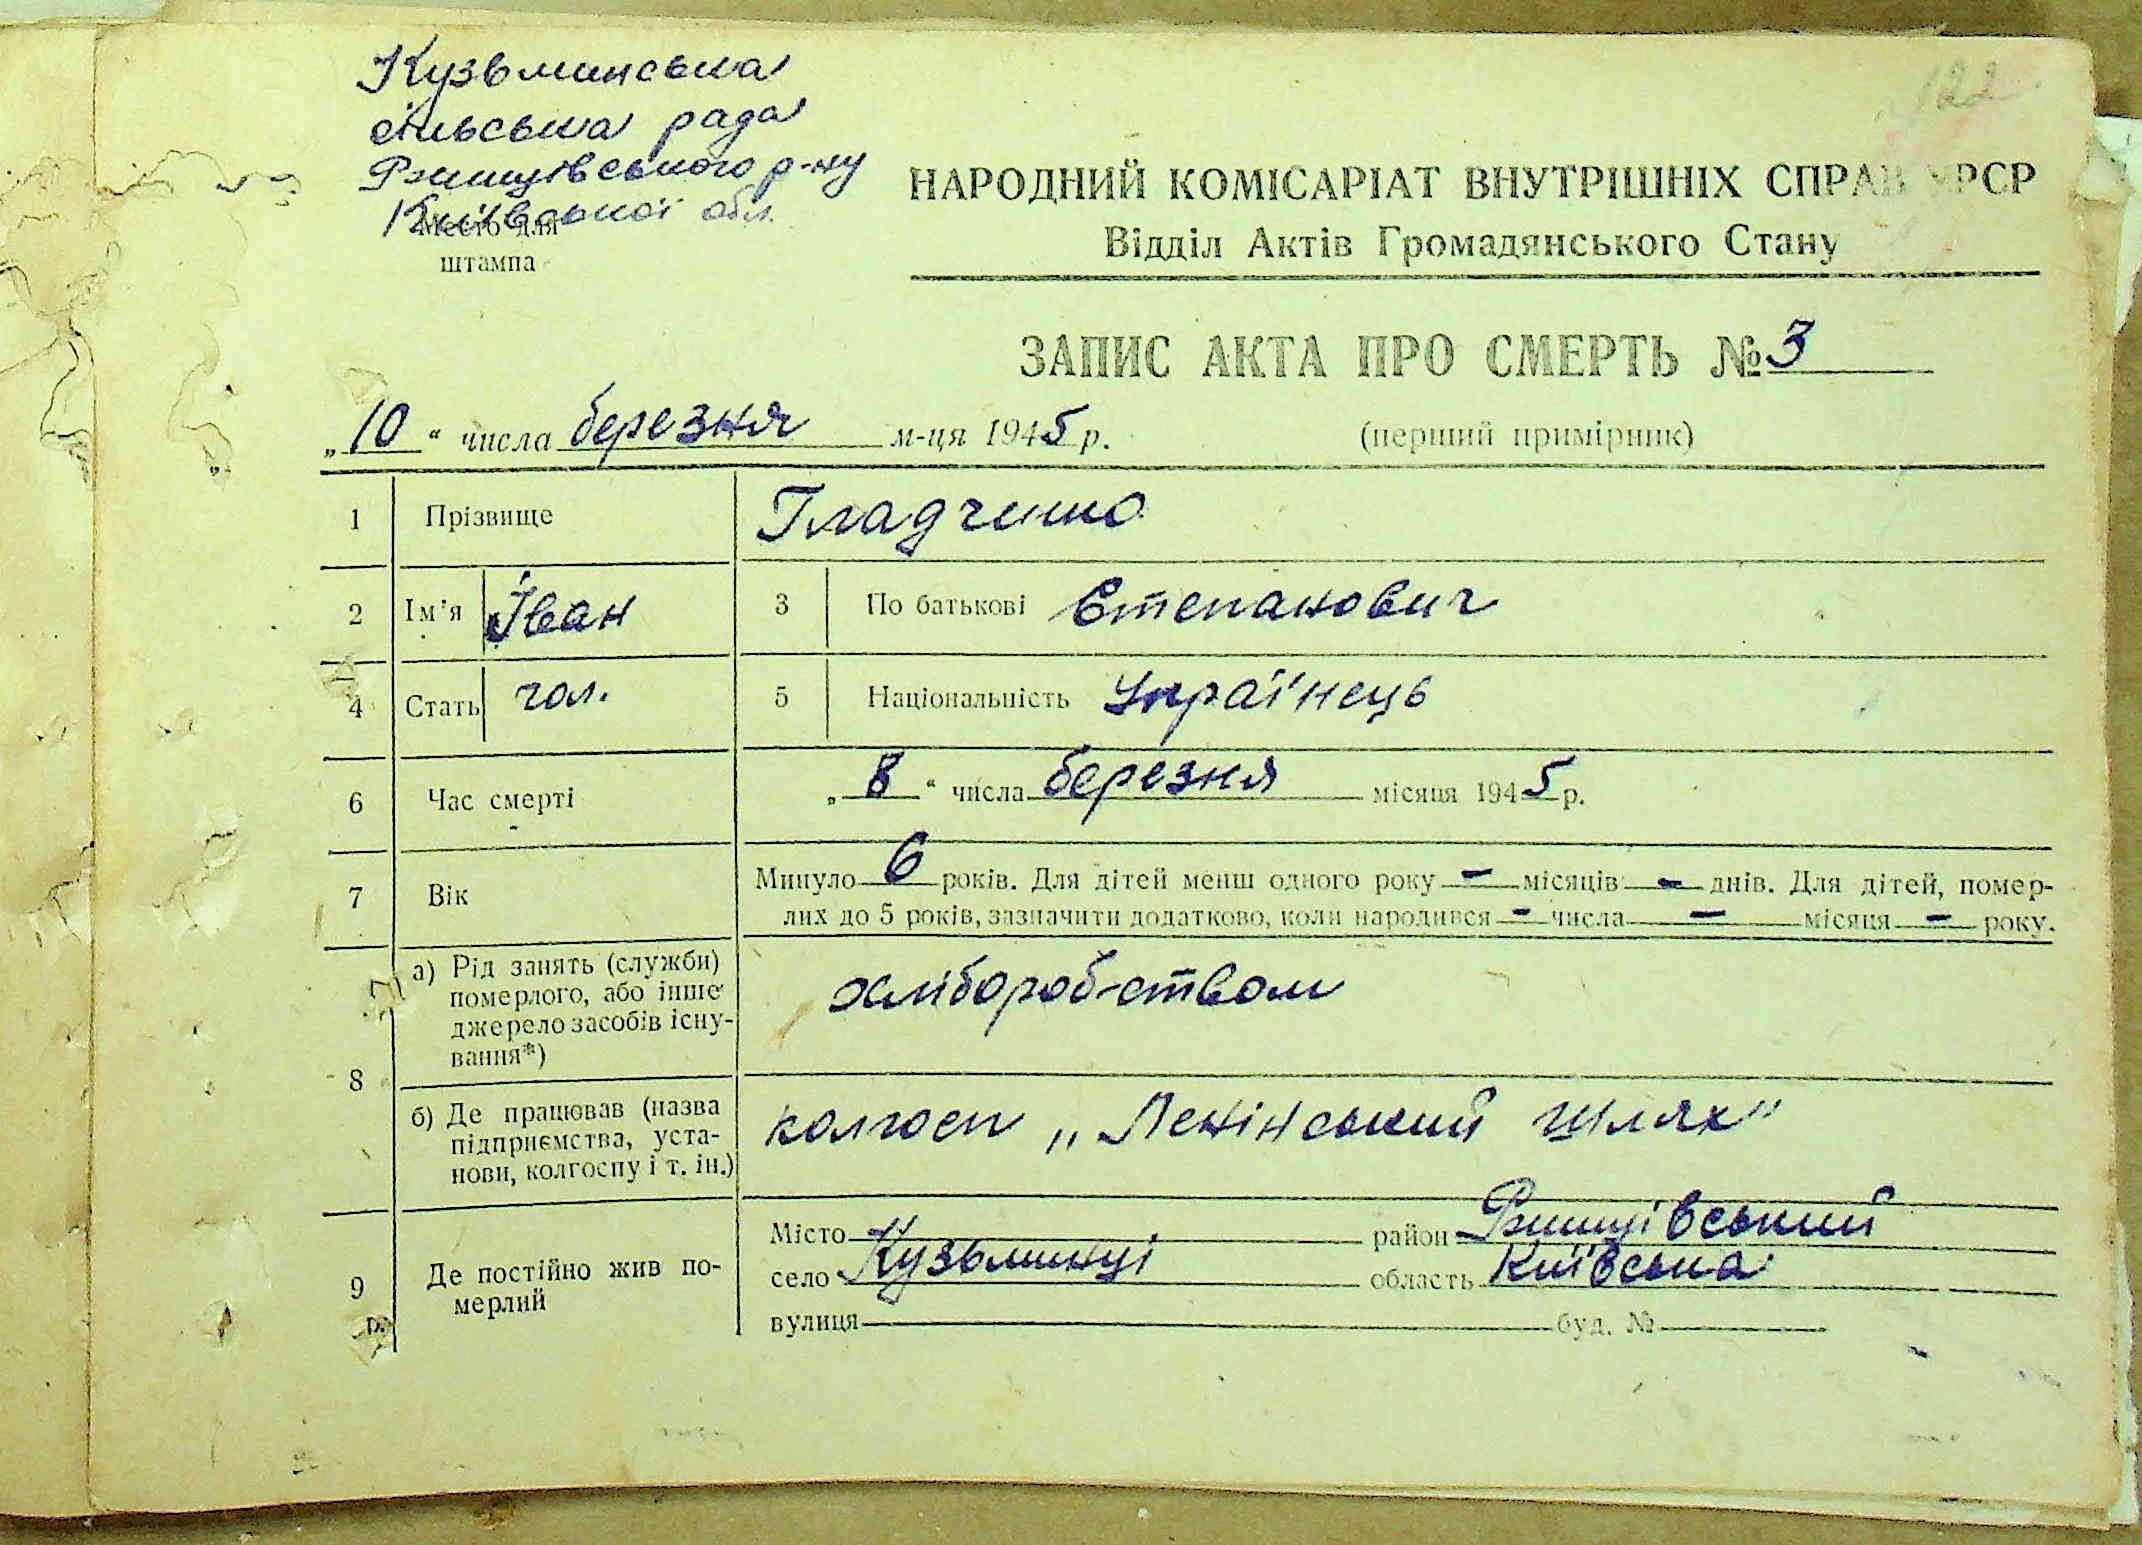 Кузьминська
сільська рада
Ржищівського р-ну
Київської обл.
Место для
штампа
122
НАРОДНИЙ КОМІСАРІАТ ВНУТРІШНІХ СПРАВ УРСР
Відділ Актів Громадянського Стану
ЗАПИС АКТА ПРО СМЕРТЬ № 3
„10“ числа березня м-ця 1945 р.
(перший примірник)
1 Прізвище Гладченко
2 Ім'я Іван 3 По батькові Степанович
4 Стать чол. 5 Національність Українець
6 Час смерті „8“ числа березня місяця 1945 р.
7 Вік Минуло 6 років. Для дітей менш одного року – місяців – днів. Для дітей, помер-
лих до 5 років, зазначити додатково, коли народився – числа – місяця – року.
8 а) Рід занять (служби)
померлого, або інше
джерело засобів існу-
вання*)
хліборобством
б) Де працював (назва
підприємства, уста-
нови, колгоспу і т. ін.)
колгосп „Ленінський шлях"
9 Де постійно жив по-
мерлий
Місто район Ржищівський
село Кузьминці область Київська
вулиця буд. №